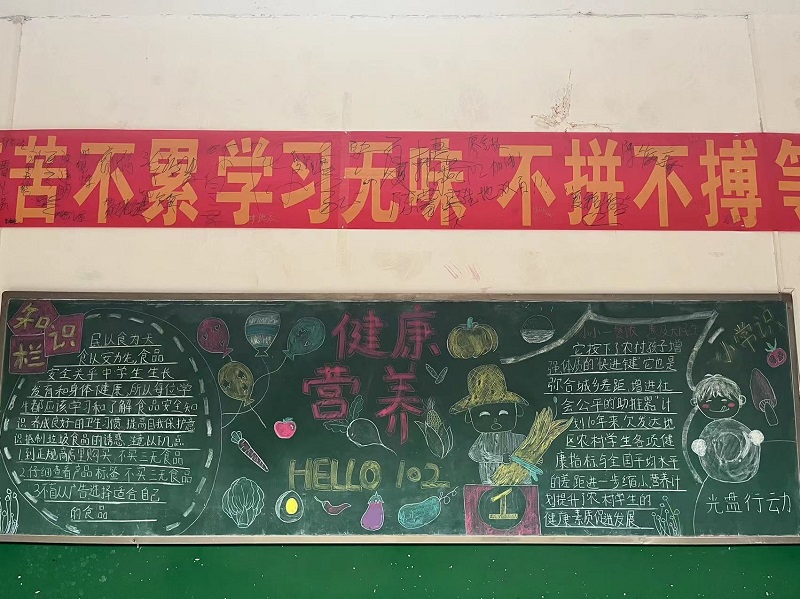 苦不累学习无味不拼不搏等
知识
栏
民以食为天
食以安为先,食品
安全关乎中学生生长
发育和身体健康,所以每位学
生都应该学习和了解食品安全知
识,养成良好的卫生习惯,提高自我保护意
识,抵制垃圾食品的诱惑,建议以下几点
1到正规商店里购买,不买三无食品
2仔细查看产品标签,不买三无食品
3不盲从广告,选择适合自己
的食品
健康
营养
HELLO 102
它按下了农村孩子增
强体质的“快进键”它也是
弥合城乡差距,增进社
会公平的助推器”计
划10年来,欠发达地
区农村学生各项健
康指标与全国平均水平
的差距进一步缩小,营养计
划提升了农村学生的
健康素质促进发展
小常识
光盘行动